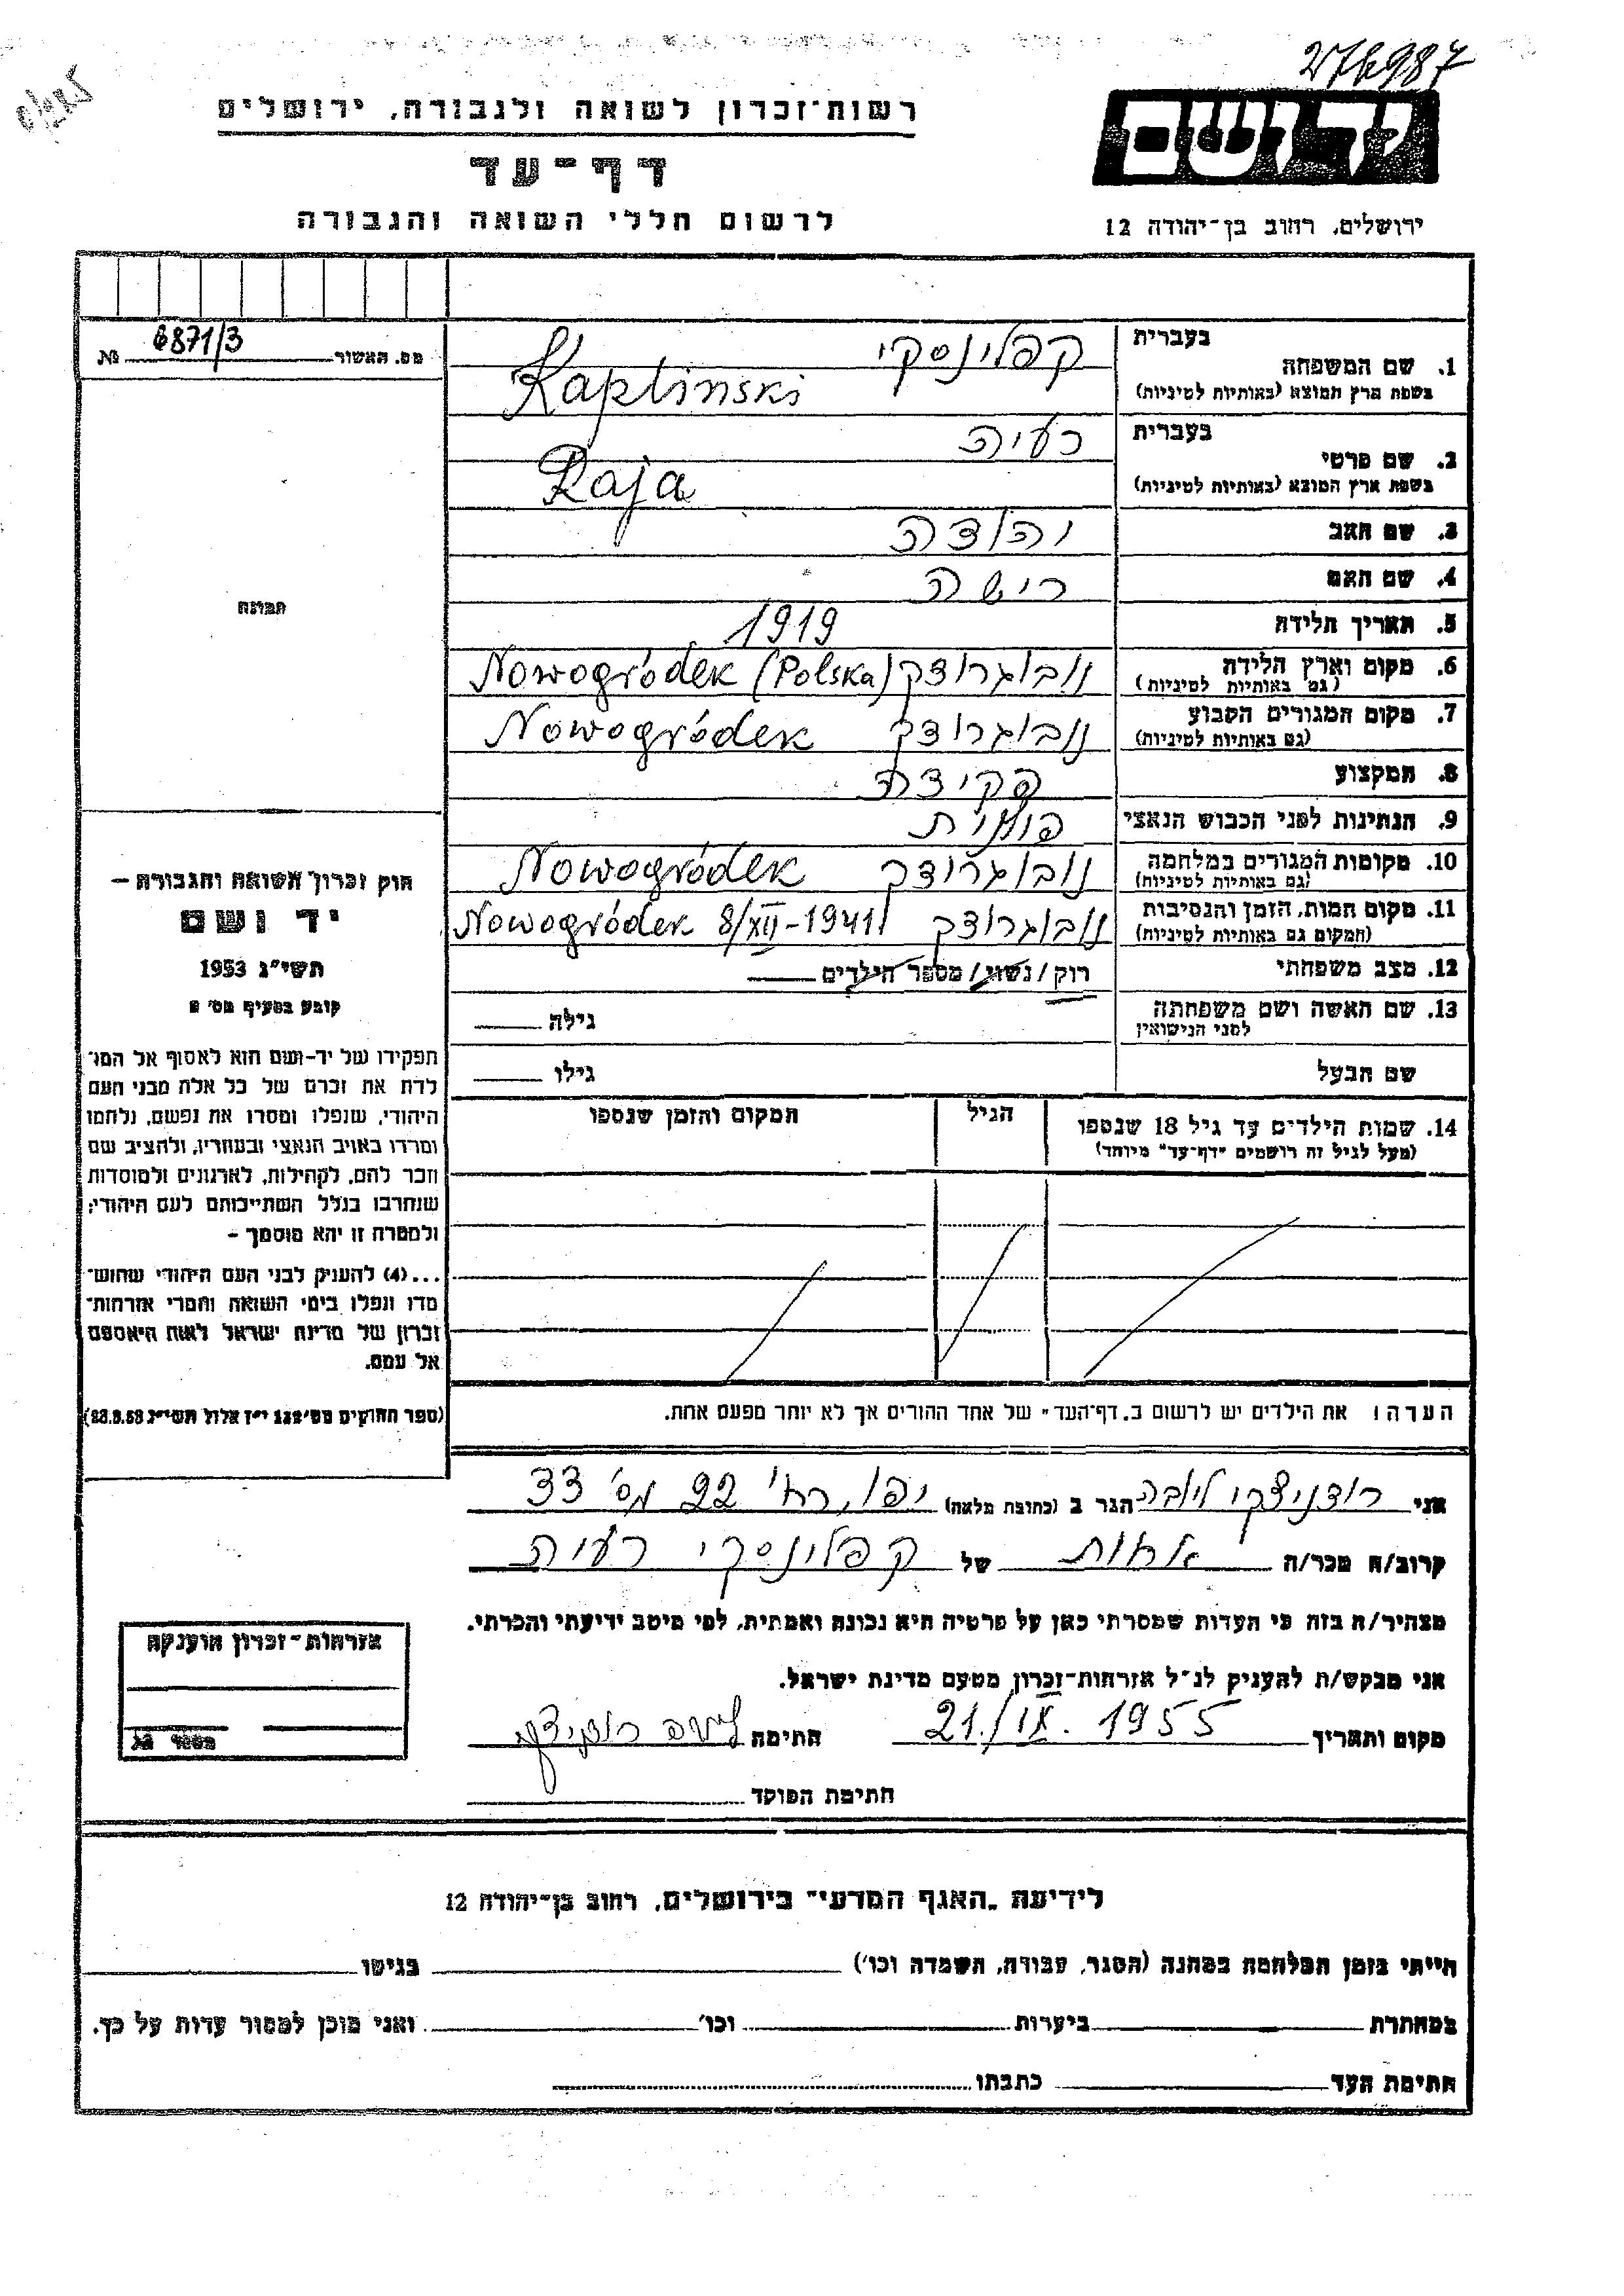 276987
רשות־זכרון לשואה ולגבורה, ירושלים
דף־עד
לרשום חללי השואה והגבורה
יד ושם
ירושלים, רחוב בן־יהודה 12
מס. האשור 6871/3 №
תמונה
חוק זכרון השואה והגבורה –
יד ושם
תשי״ג 1953
קובע בסעיף מס׳ 2
תפקידו של יד-ושם הוא לאסוף אל המו־
לדת את זכרם של כל אלה מבני העם
היהודי, שנפלו ומסרו את נפשם, נלחמו
ומרדו באויב הנאצי ובעוזריו, ולהציב שם
וזכר להם, לקהילות, לארגונים ולמוסדות
שנחרבו בגלל השתייכותם לעם היהודי;
ולמטרה זו יהא מוסמך –
...(4) להעניק לבני העם היהודי שהוש־
מדו ונפלו בימי השואה והמרי אזרחות־
זכרון של מדינת ישראל לאות היאספם
אל עמם.
(ספר החוקים מס׳ 132 י״ז אלול תשי״ג 28.8.53)
בעברית קפלינסקי
1. שם המשפחה
בשפת ארץ המוצא (באותיות לטיניות) Kaplinski
בעברית רעיה
2. שם פרטי
בשפת ארץ המוצא (באותיות לטיניות) Raja
3. שם האב יהודה
4. שם האם רישה
5. תאריך הלידה 1919
6. מקום וארץ הלידה נובוגרודק Nowogródek (Polska)
(גם באותיות לטיניות)
7. מקום המגורים הקבוע נובוגרודק Nowogródek
(גם באותיות לטיניות)
8. המקצוע פקידה
9. הנתינות לפני הכבוש הנאצי פולנית
10. מקומות המגורים במלחמה נובוגרודק Nowogródek
(גם באותיות לטיניות)
11. מקום המות, הזמן והנסיבות נובוגרודק Nowogródek 8/XII-1941
(המקום גם באותיות לטיניות)
12. מצב משפחתי רוק / נשוי / מספר הילדים
13. שם האשה ושם משפחתה גילה
לפני הנישואין
שם הבעל גילו
14. שמות הילדים עד גיל 18 שנספו הגיל המקום והזמן שנספו
(מעל לגיל זה רושמים "דף־עד" מיוחד)
הערה: את הילדים יש לרשום ב„דף־העד" של אחד ההורים אך לא יותר מפעם אחת.
אני רודניצקי ליובה הגר ב (כתובת מלאה) יפו, רח' 22 מס' 33
קרוב/ה מכר/ה אחות של קפלינסקי רעיה
מצהיר/ה בזה כי העדות שמסרתי כאן על פרטיה היא נכונה ואמתית, לפי מיטב ידיעתי והכרתי.
אני מבקש/ת להעניק לנ״ל אזרחות־זכרון מטעם מדינת ישראל.
מקום ותאריך 21./IX. 1955 חתימה ליובה רודניצקי
חתימת הפוקד
אזרחות־זכרון הוענקה
לידיעת „האגף המדעי" בירושלים, רחוב בן־יהודה 12
הייתי בזמן המלחמה במחנה (הסגר, עבודה, השמדה וכו') בגיטו
במחתרת ביערות וכו' ואני מוכן למסור עדות על כך.
חתימת העד כתבתו